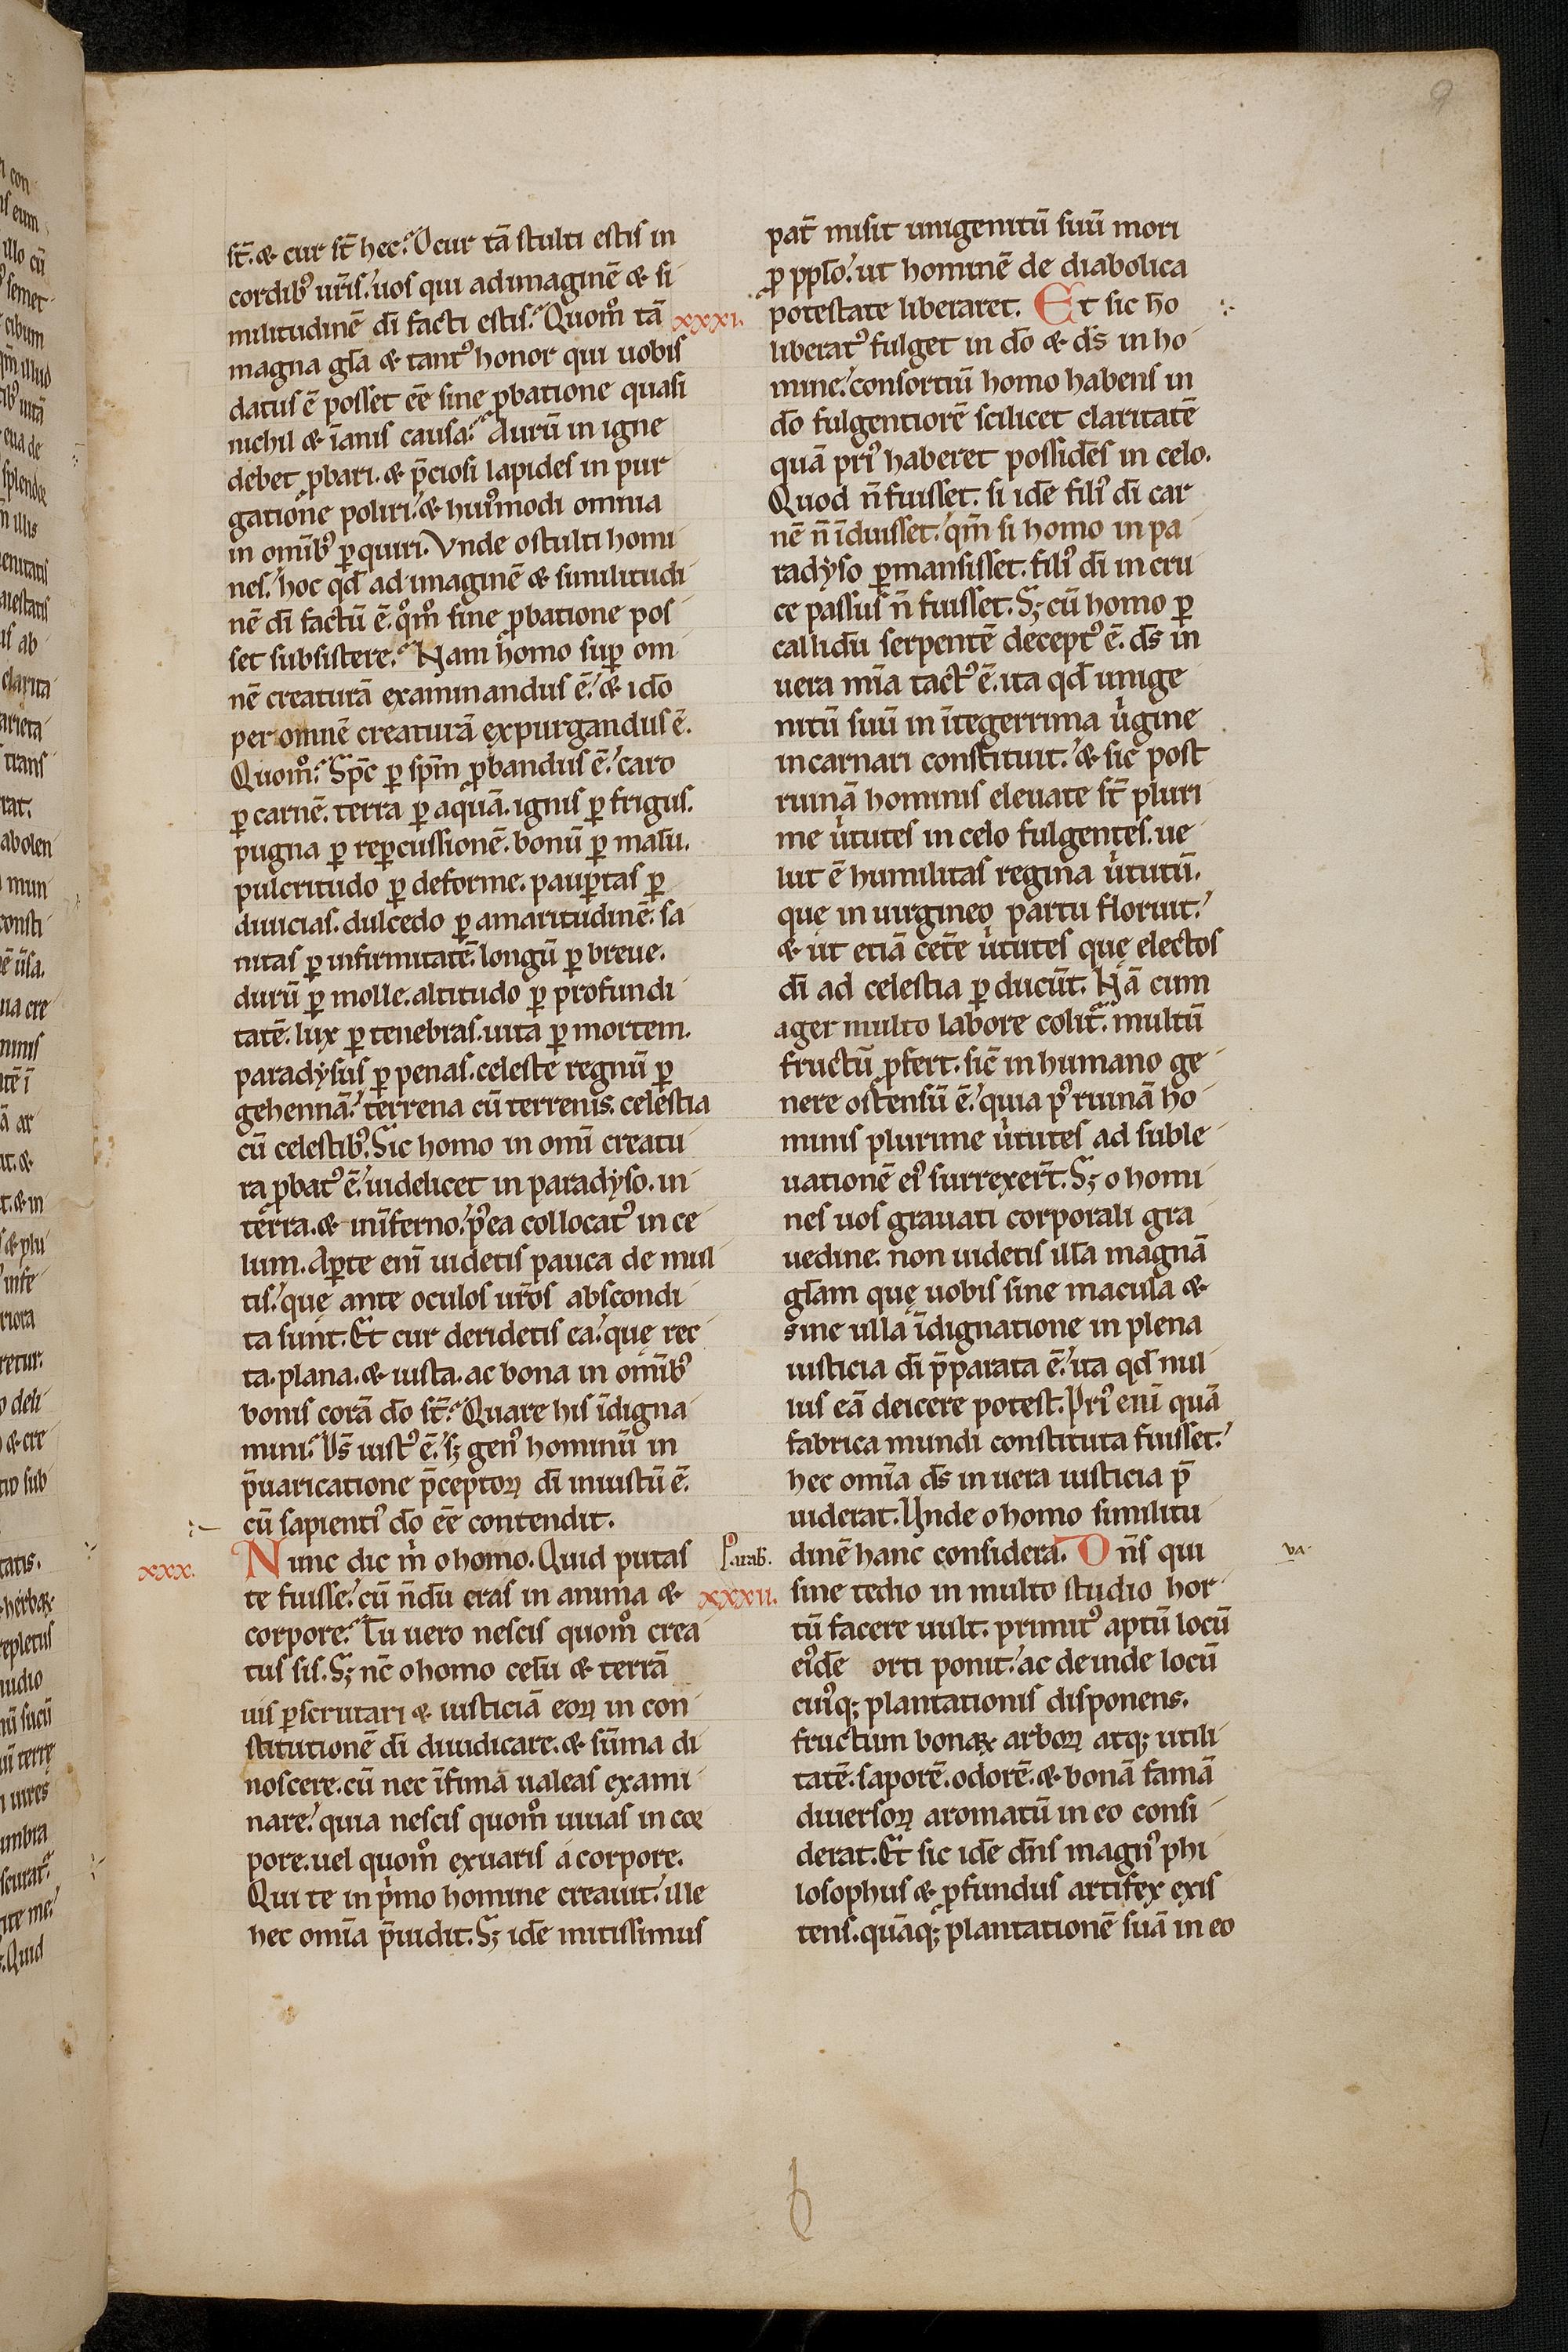 st̄. & cur st̄ hec? O cur tā stulti estis in
cordib; ur̄is. uos qui ad imaginē & si
militudinē dī facti estis? Quom̊ tā
magna gl̄a & tant᷒ honor qui uobis
datus ē posset eē sine ꝓbatione quasi
nichil & īanis causa? Aurū in igne
debet ꝓbari. & p̄ciosi lapides in pur
gatione poliri. & hui᷒modi omnia
in omīb᷒ ꝑquiri. Vnde o stulti homi
nes. hoc qd̄ ad imaginē & similitudi
nē dī factū ē. q̊m̊ sine ꝓbatione pos
set subsistere? Nam homo suꝑ om
nē creaturā examinandus ē. & idō
per omnē creaturā expurgandus ē.
Quom̊? Spc̄ ꝑ spm̄ ꝓbandus ē. caro
ꝑ carnē. terra ꝑ aquā. ignis ꝑ frigus.
pugna ꝑ reꝑcussionē. bonū ꝑ malū.
pulcritudo ꝑ deforme. pauꝑtas ꝑ
diuicias. dulcedo ꝑ amaritudinē. sa
nitas ꝑ infirmitatē. longū ꝑ breue.
durū ꝑ molle. altitudo ꝑ profundi
tatē. lux ꝑ tenebras. uita ꝑ mortem.
paradysus ꝑ penas. celeste regnū ꝑ
gehennā. terrena cū terrenis. celestia
cū celestib᷒. Sic homo in omī creatu
ra ꝓbat᷒ ē. uidelicet in paradyso. in
terra. & in inferno. p᷒ea collocat᷒ in ce
lum. Aꝑte enī uidetis pauca de mul
tis. que ̨ante oculos ur̄os abscondi
ta sunt. Et cur deridetis ea. quę rec
ta. plana. & iusta. ac bona in omīb᷒
bonis corā dō st̄? Quare his īdigna
mini? Ds̄ iust᷒ ē. sꝫ gen᷒ hominū in
p̄uaricatione p̄ceptoꝝ dī iniustū ē.
cū sapienti᷒ dō eē contendit.
xxx. Nunc dic m̄ o homo. Quid putas
te fuisse. cū n̄dū eras in anima &
corpore? Tu uero nescis quom̊ crea
tus sis. Sꝫ nc̄ o homo celū & terrā
uis ꝑscrutari & iusticiā eoꝝ in con
stitutionē dī diiudicare. & sūma di
noscere. cū nec īfima ualeas exami
nare. quia nescis quom̊ uiuas in cor
pore. uel quom̊ exuaris á corpore.
Qui te in pͥmo homine creauit. ille
hec omīa p̄uidit. Sꝫ idē mitissimus
9
pat̄ misit unigenitū suū mori
ꝓ pplō. ut hominē de diabolica
xxxi. potestate liberaret. Et sic hō
liberat᷒ fulget in dō & ds̄ in ho
mine. consortiū homo habens in
dō fulgentiorē scilicet claritatē
quā pri᷒ haberet possidēs in celo.
Quod n̄ fuisset. si idē fili᷒ dī car
nē n̄ īduisset. qm̄ si homo in pa
radyso ꝑmansisset. fili᷒ dī in cru
ce passus n̄ fuisset. Sꝫ cū homo ꝑ
callidū serpentē decept᷒ ē. ds̄ in
uera mīa tact᷒ ē. ita qd̄ unige
nitū suū in ītegerrima uͥgine
incarnari constituit. & sic post
ruinā hominis eleuate st̄ pluri
me uͥtutes in celo fulgentes. ue
lut ē humilitas regina uͥtutū.
quę in uirgineo partu floruit.
& ut etiā cet̄e uͥtutes quę electos
dī ad celestia ꝑducūt. Nā cum
ager multo labore colit᷑. multū
fructū ꝓfert. sic̄ in humano ge
nere ostensū ē. quia p᷒ ruinā ho
minis plurime uͥtutes ad suble
uationē ei᷒ surrexer̄t. Sꝫ o homi
nes uos grauati corporali gra
uedine. non uidetis illā magnā
gl̄am quę uobis sine macula &
sine ulla īdignatione in plena
iusticia dī p̄parata ē. ita qd̄ nul
lus eā deicere potest. Pri᷒ enī quā
fabrica mundi constituta fuisset.
hec omīa ds̄ in uera iusticia p̄
uiderat. Unde o homo similitu
dinē hanc considera. Dn̄s qui
xxxii. sine tedio in multo studio hor
tū facere uult. primit᷒ aptū locū
ei᷒dē orti ponit. ac deinde locū
cui᷒qꝫ plantationis disponens.
fructum bonaꝝ arboꝝ atqꝫ utili
tatē. saporē. odorē. & bonā famā
diuersoꝝ aromatū in eo consi
derat. Et sic idē dn̄s magn᷒ phi
losophus & ꝓfundus artifex exis
tens. quāqꝫ plantationē suā in eo
va.